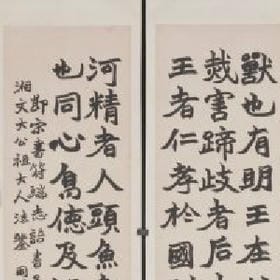 獸也有明王在
烖害蹄歧者后
王者仁孝於國
河精者人頭魚
也同心為德及
鄖宗書符瑞志語書
湘文大公祖大人法鑒